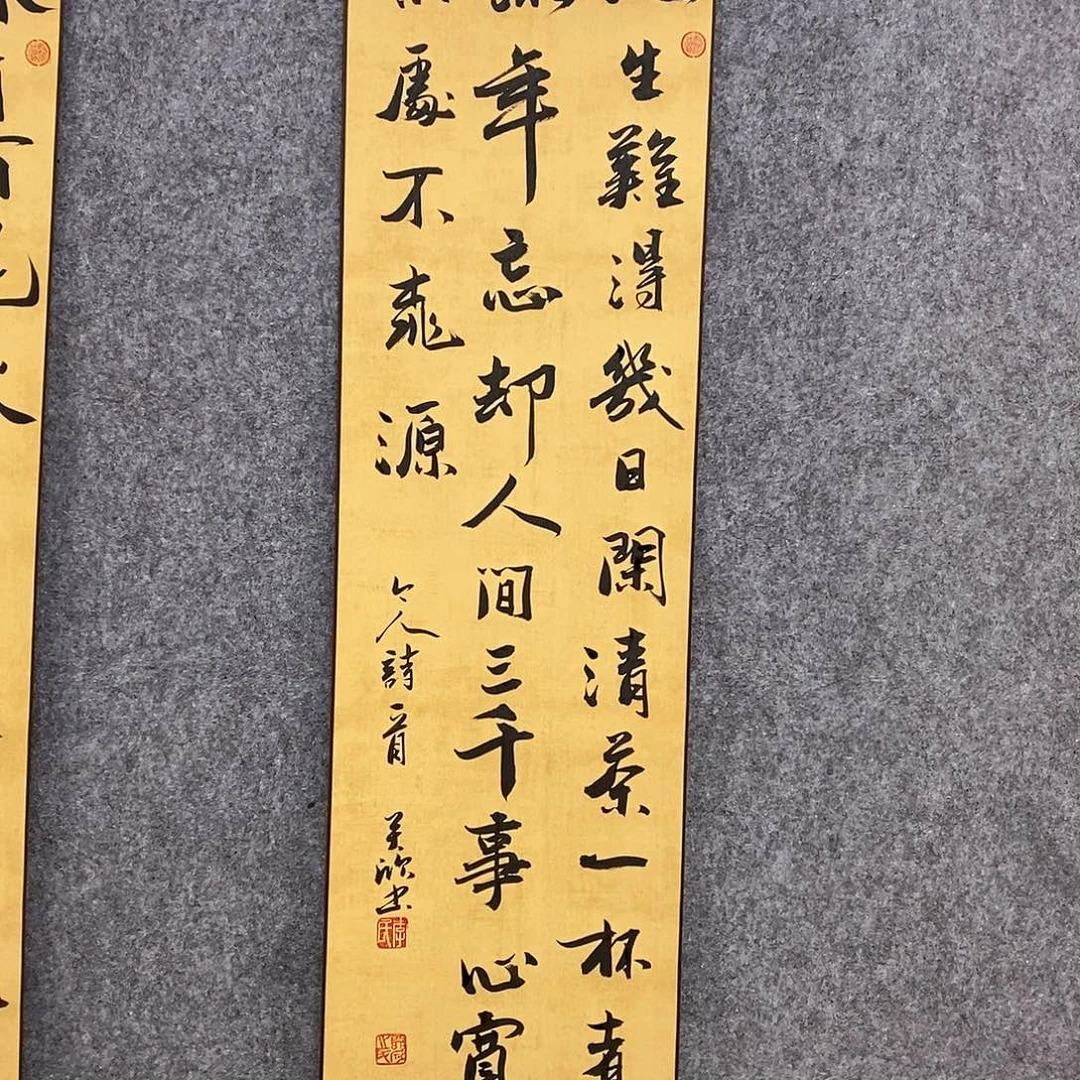 生難得幾日閑清茶一杯煮
年忘却人間三千事心寬
處不桃源
今人詩一首